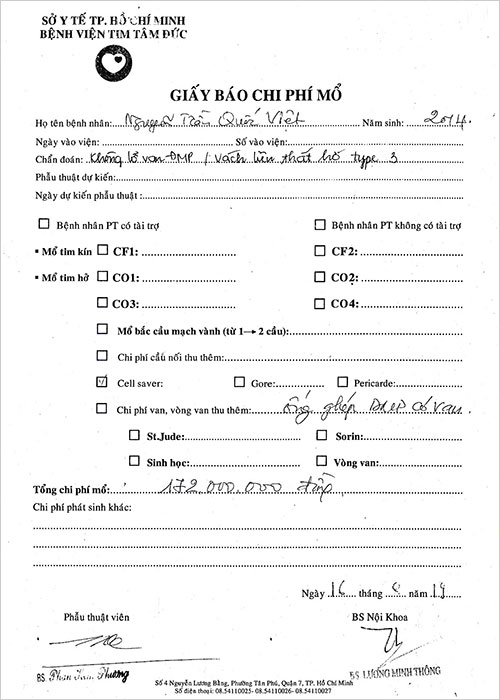 SỞ Y TẾ TP. HỒ CHÍ MINH
BỆNH VIỆN TIM TÂM ĐỨC
GIẤY BÁO CHI PHÍ MỔ
Họ tên bệnh nhân: Nguyễn Trần Quốc Việt Năm sinh: 2014.
Ngày vào viện: Số vào viện:
Chẩn đoán: Không lỗ van ĐMP / vách liên thất hở type 3
Phẫu thuật dự kiến:
Ngày dự kiến phẫu thuật:
Bệnh nhân PT có tài trợ Bệnh nhân PT không có tài trợ
▪ Mổ tim kín CF1: CF2:
▪ Mổ tim hở CO1: CO2:
CO3: CO4:
Mổ bắc cầu mạch vành (từ 1→ 2 cầu):
Chi phí cầu nối thu thêm:
Cell saver: Gore: Pericarde:
Chi phí van, vòng van thu thêm: ống ghép ĐMP có van.
St.Jude: Sorin:
Sinh học: Vòng van:
Tổng chi phí mổ: 172.000.000 đồng
Chi phí phát sinh khác:
Ngày 16 tháng năm 19
Phẫu thuật viên BS Nội Khoa
BS. Phương BS. LƯƠNG MINH THÔNG
Số 4 Nguyễn Lương Bằng, Phường Tân Phú, Quận 7, TP. Hồ Chí Minh
Số điện thoại: 08.54110025- 08.54110026- 08.54110027